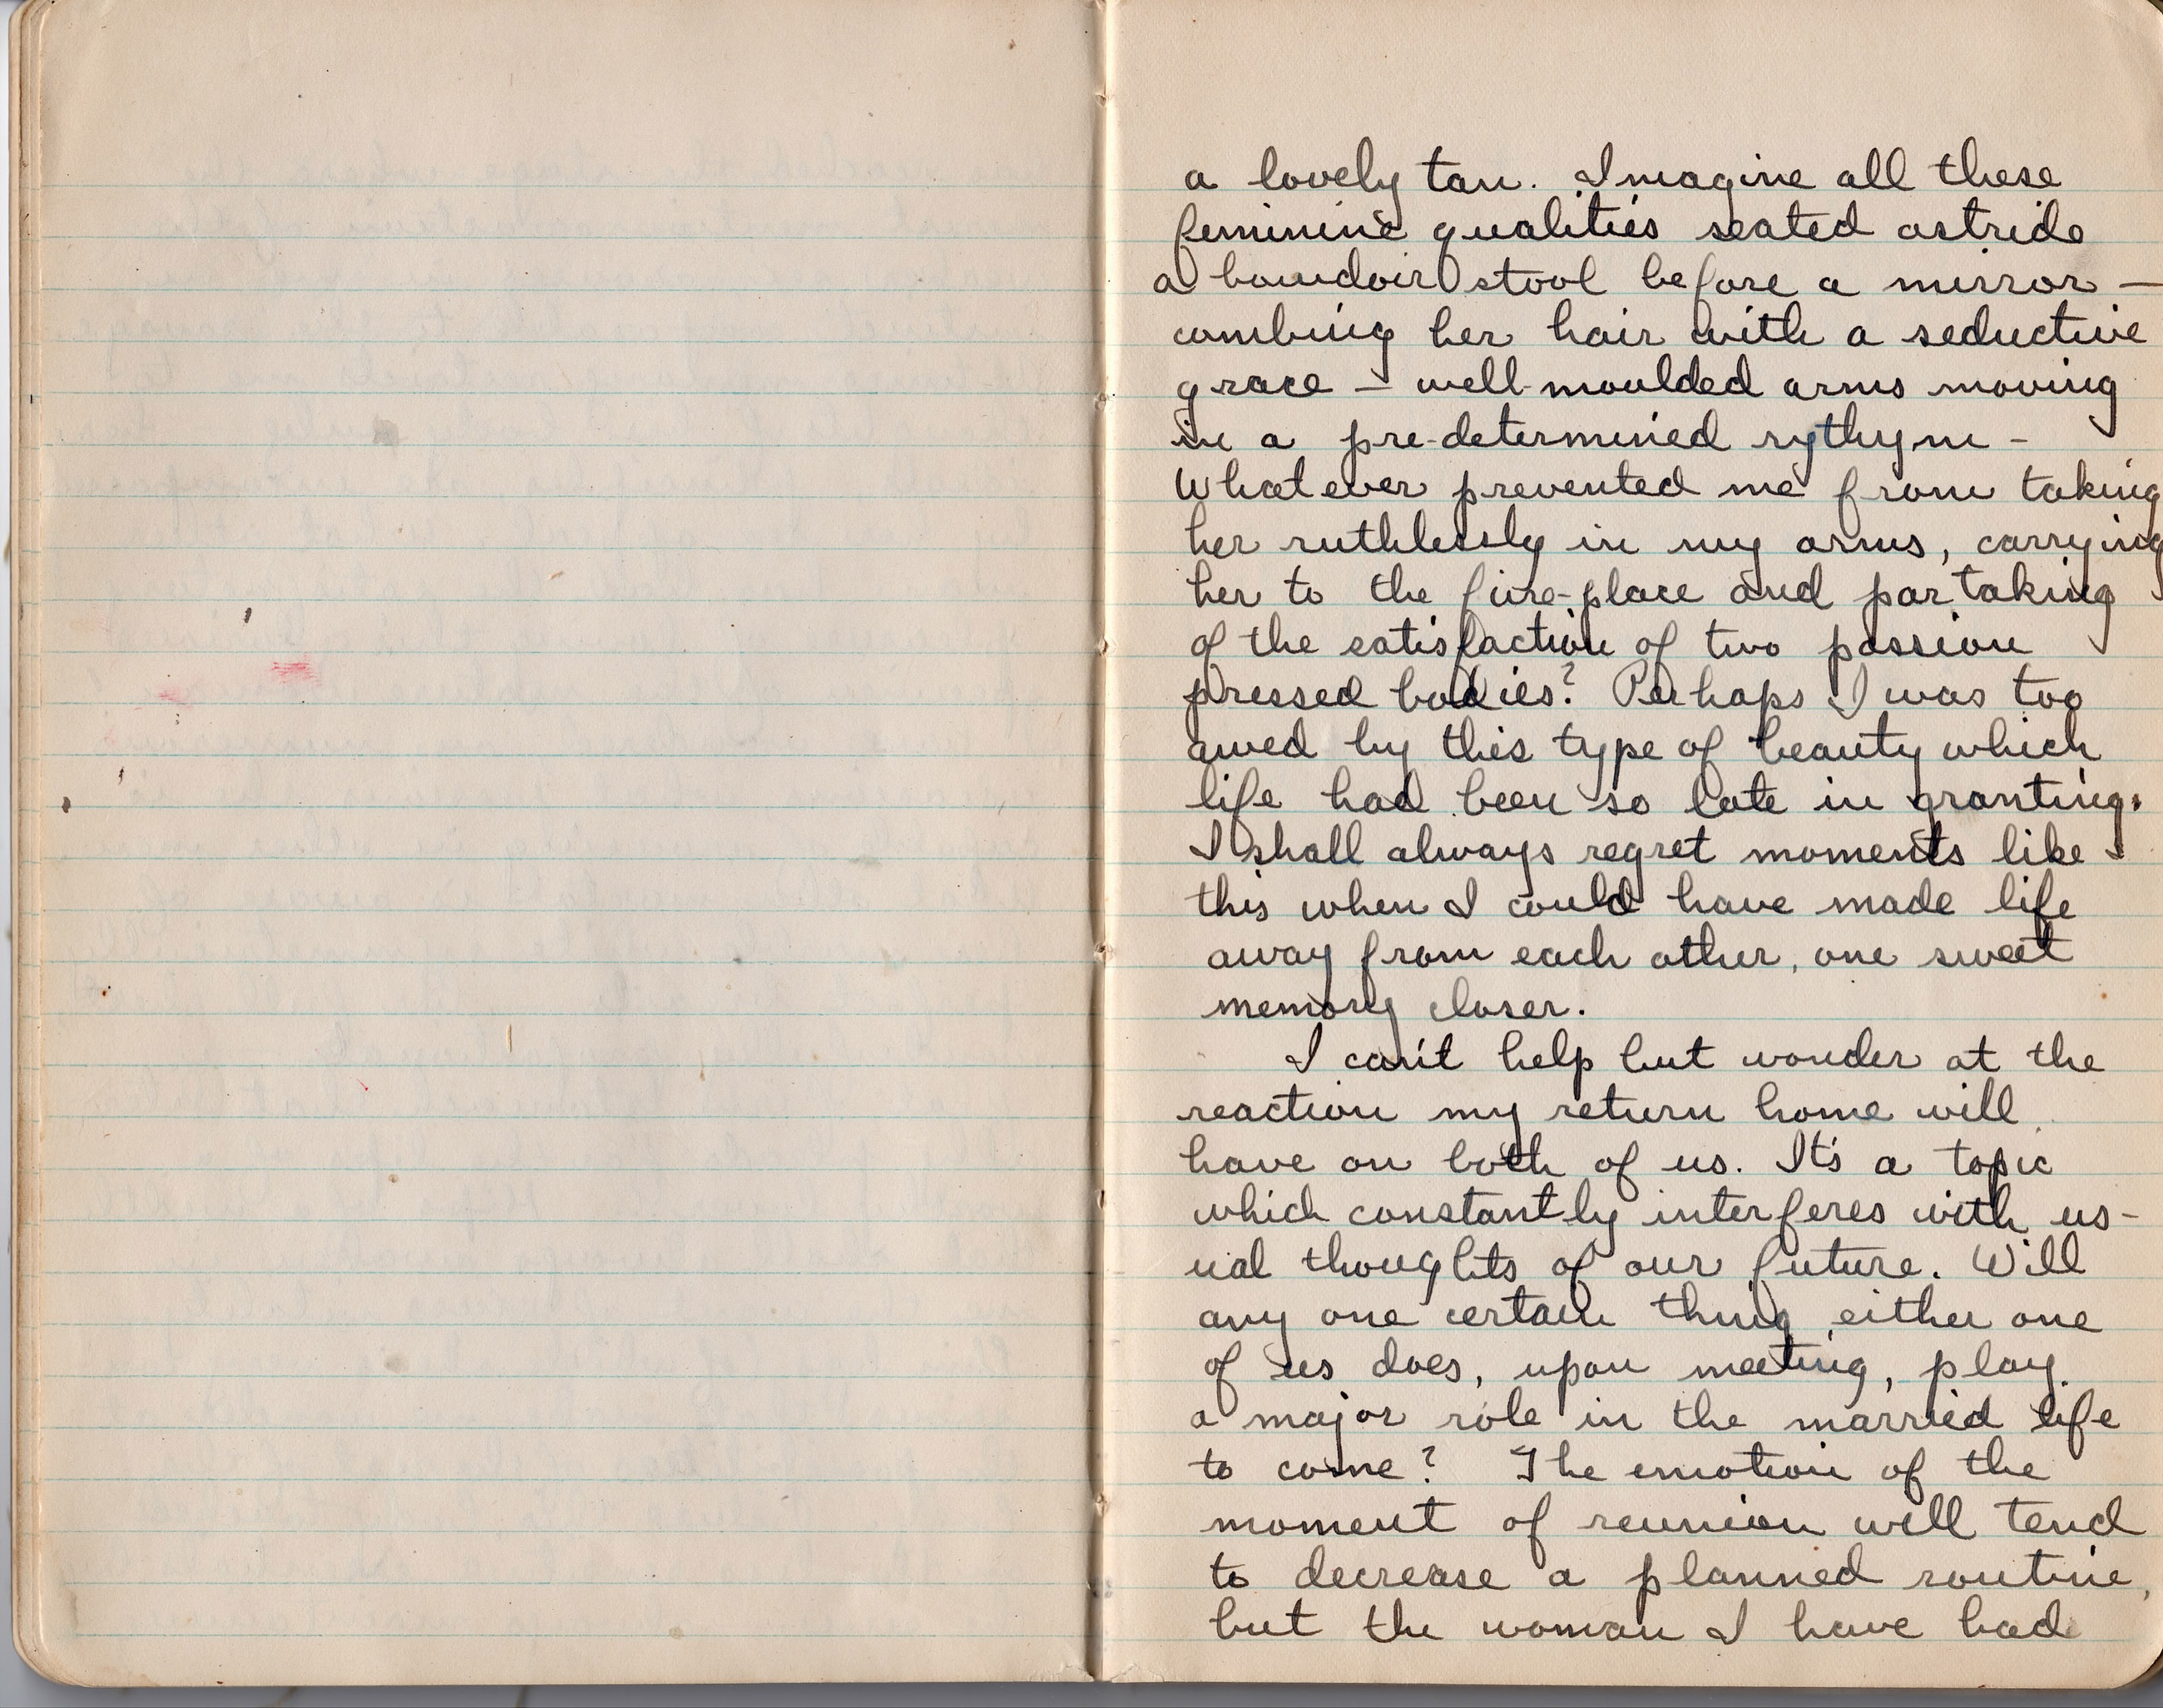 a lovely tan. Imagine all these
feminine qualities seated astride
a boudoir stool before a mirror —
combing her hair with a seductive
grace — well-moulded arms moving
in a pre-determined rythym -
Whatever prevented me from taking
her ruthlessly in my arms, carrying
her to the fire-place and partaking
of the satisfaction of two passion
pressed bodies? Perhaps I was too
awed by this type of beauty which
life had been so late in granting.
I shall always regret moments like
this when I could have made life
away from each other, one sweet
memory closer.
I can't help but wonder at the
reaction my return home will
have on both of us. It's a topic
which constantly interferes with us-
ual thoughts of our future. Will
any one certain thing either one
of us does, upon meeting, play
a major role in the married life
to come? The emotion of the
moment of reunion will tend
to decrease a planned routine,
but the woman I have had